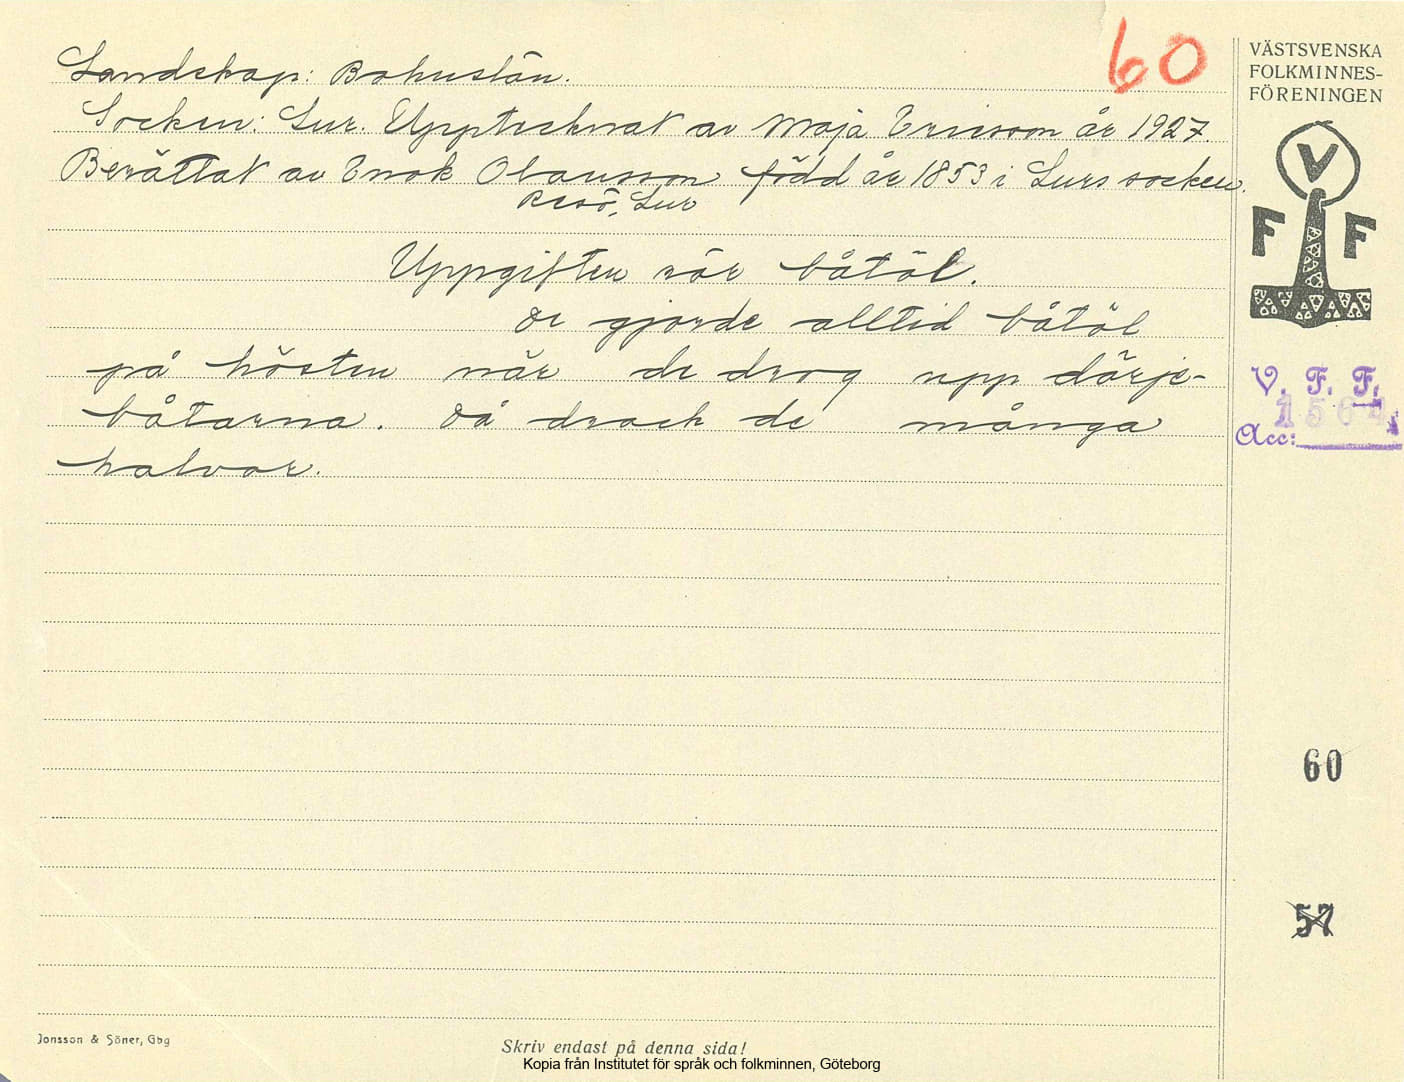 60
Landskap: Bohuslän.
Socken: Lur. Upptecknat av Maja Ericsson år 1927.
Berättat av Enok Olausson född år 1853 i Lurs socken.
Resö, Lur
Uppgiften rör båtöl.
De gjorde alltid båtöl
på hösten när de drog upp dörje-
båtarna. Då drack de många
halvor.
VÄSTSVENSKA
FOLKMINNES-
FÖRENINGEN
V
F F
V. F. F.
1564
Acc:
60
57
Jonsson & Söner, Gbg
Skriv endast på denna sida!
Kopia från Institutet för språk och folkminnen, Göteborg